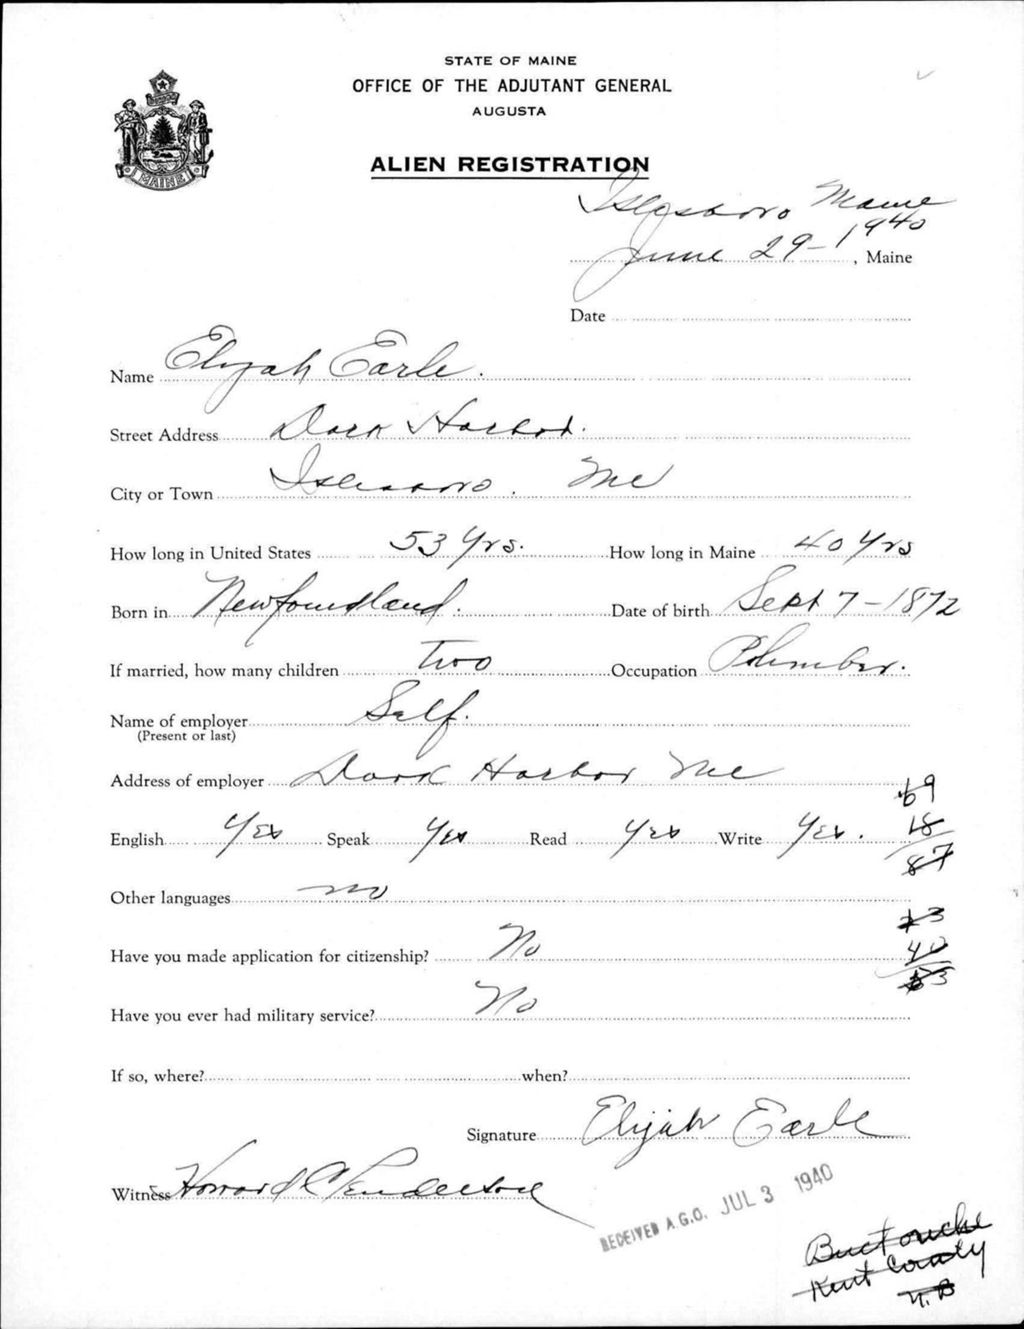 STATE OF MAINE
OFFICE OF THE ADJUTANT GENERAL
AUGUSTA
MAINE
ALIEN REGISTRATION
Islesboro Maine
June 29-1940, Maine
Date
Name Elijah Earle.
Street Address Dark Harbor.
City or Town Islesboro. Me
How long in United States 53 Yrs. How long in Maine 40 Yrs
Born in Newfoundland. Date of birth Sept 7-1872
If married, how many children Two Occupation Plumber.
Name of employer Self.
(Present or last)
Address of employer Dark Harbor Me
69
English Yes Speak Yes Read Yes Write Yes. 18
87
Other languages no
13
Have you made application for citizenship? No 40
53
Have you ever had military service? No
If so, where? when?
Signature Elijah Earle
Witness Howard Penderton
RECEIVED A.G.O. JUL 3 1940
Buctouche
Kent County
N.B